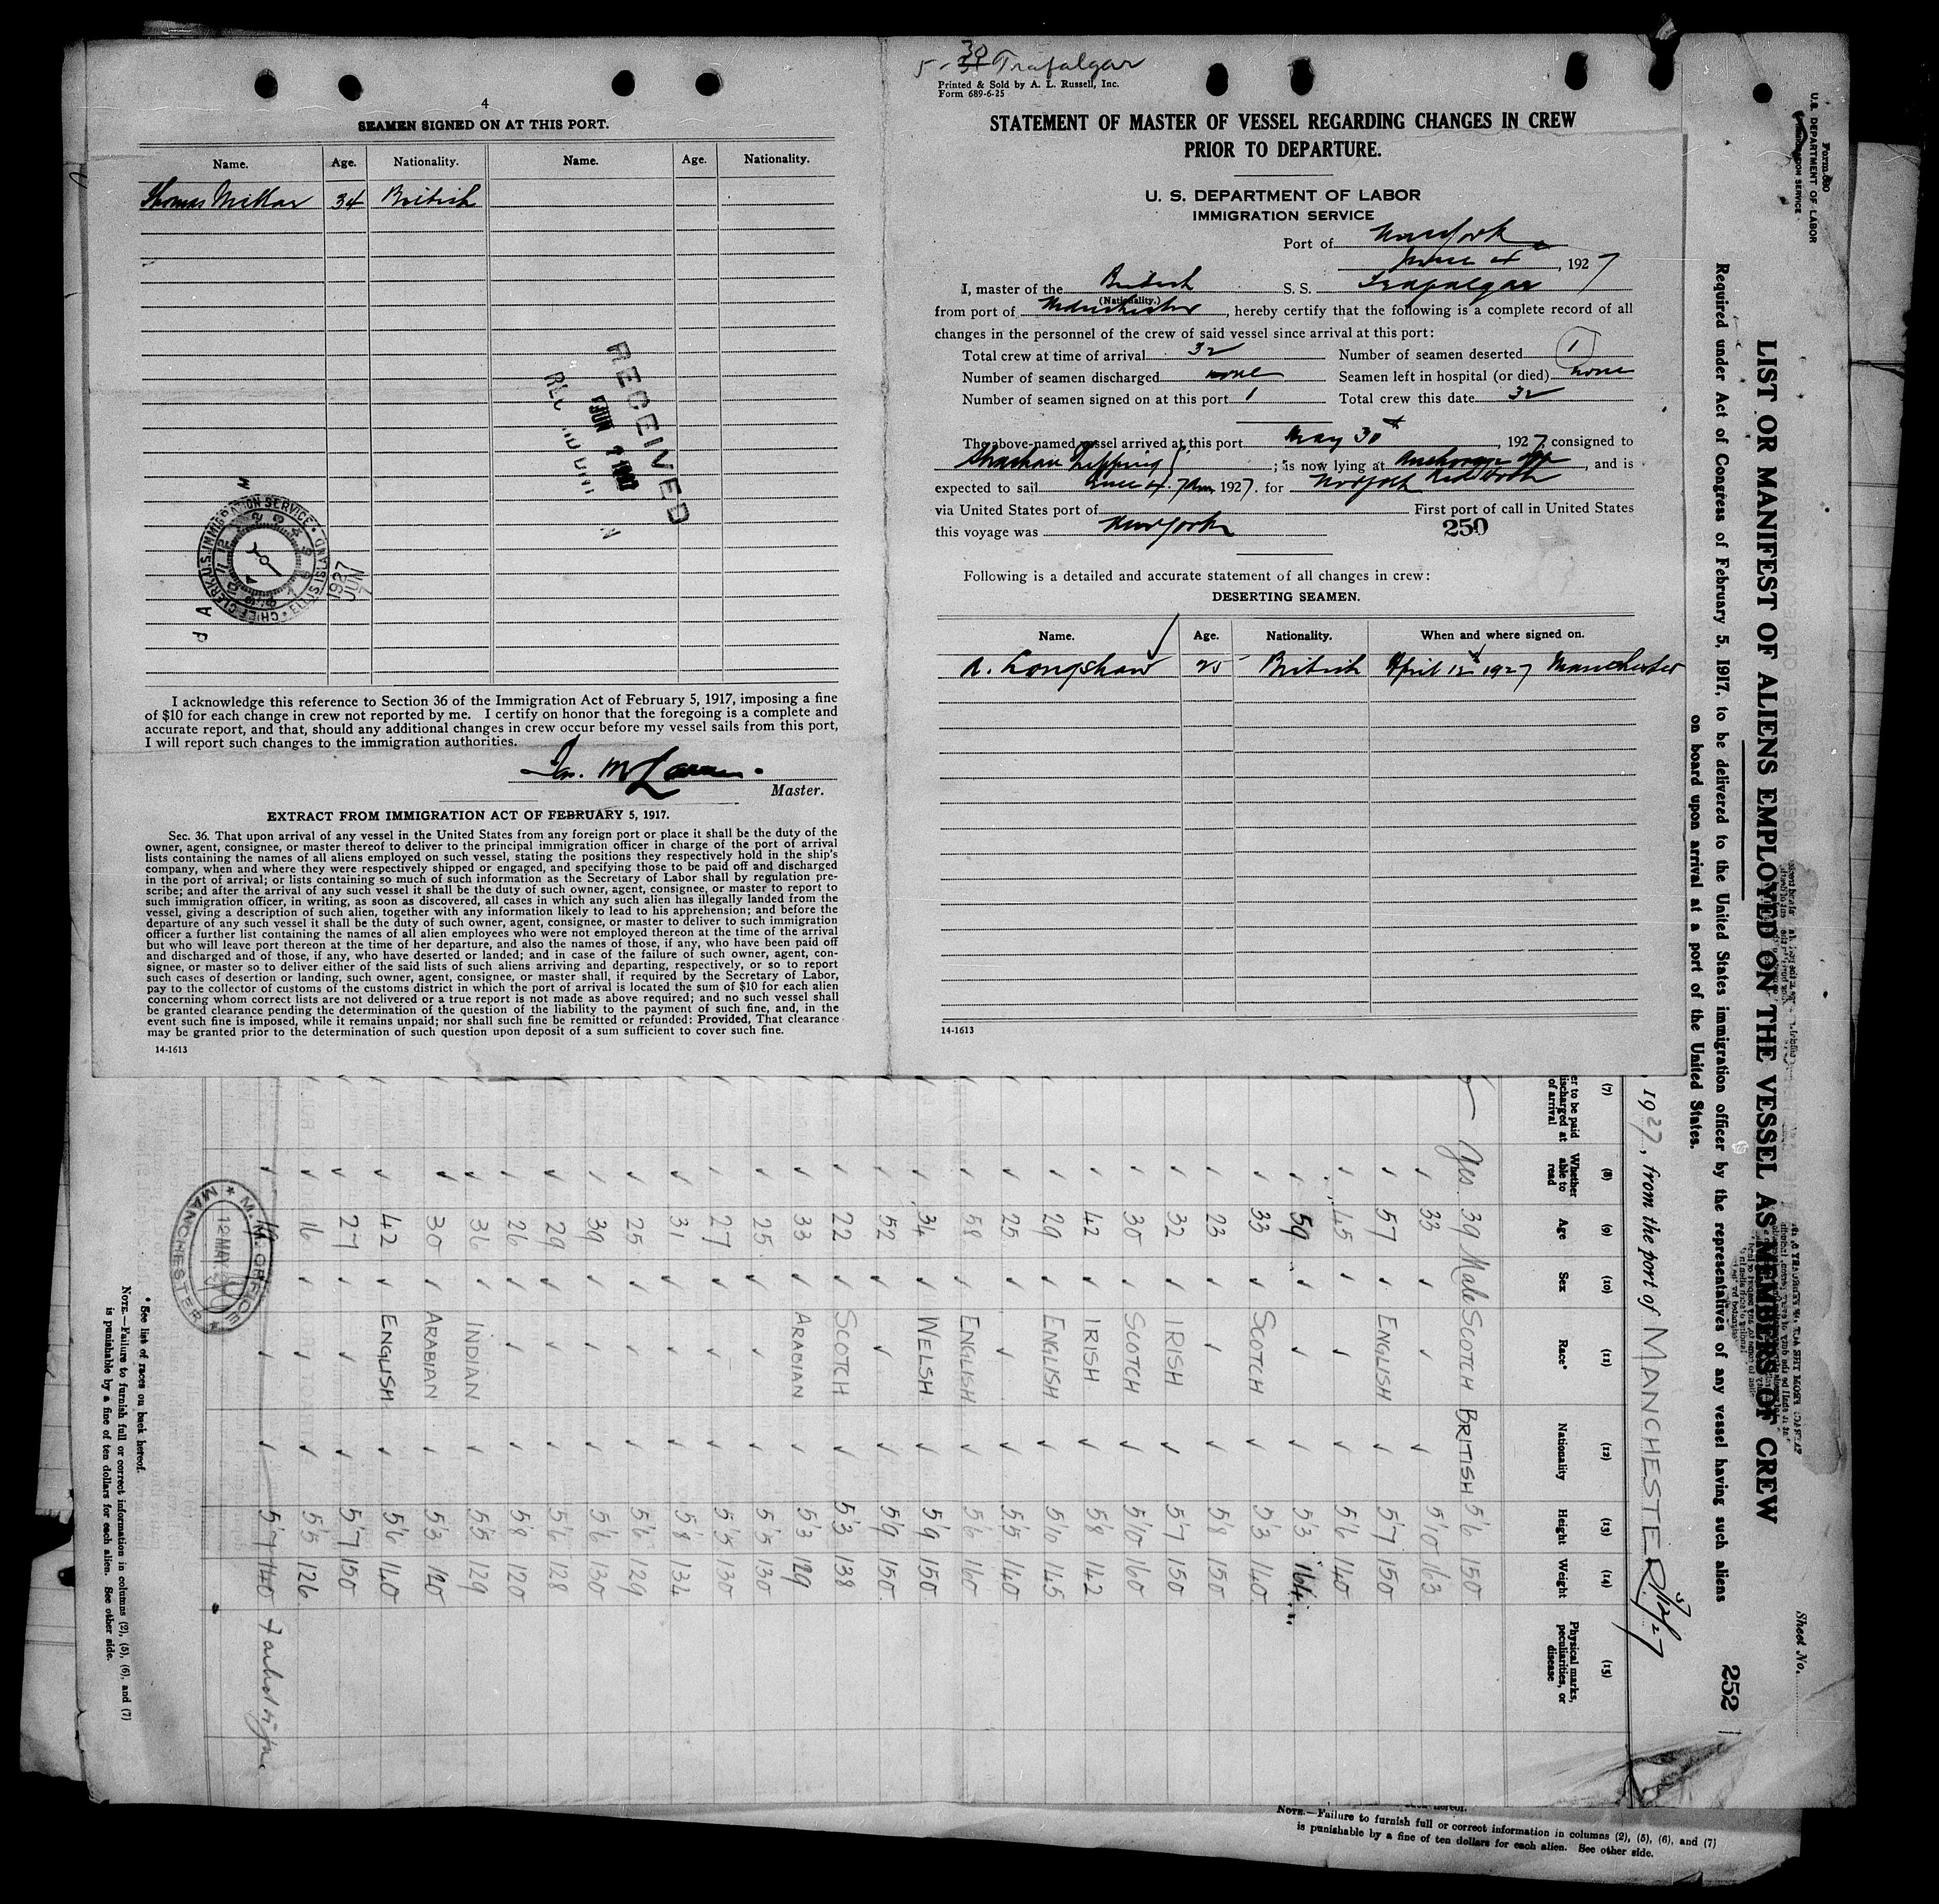 4
SEAMEN SIGNED ON AT THIS PORT.
Name. Age. Nationality. Name. Age. Nationality.
Thomas Millar 34 British
RECEIVED
JUN 7 1927
CHIEF CLERK U.S. IMMIGRATION SERVICE • ELLIS ISLAND •
1927
JUN
7
I acknowledge this reference to Section 36 of the Immigration Act of February 5, 1917, imposing a fine
of $10 for each change in crew not reported by me. I certify on honor that the foregoing is a complete and
accurate report, and that, should any additional changes in crew occur before my vessel sails from this port,
I will report such changes to the immigration authorities.
Master.
EXTRACT FROM IMMIGRATION ACT OF FEBRUARY 5, 1917.
Sec. 36. That upon arrival of any vessel in the United States from any foreign port or place it shall be the duty of the
owner, agent, consignee, or master thereof to deliver to the principal immigration officer in charge of the port of arrival
lists containing the names of all aliens employed on such vessel, stating the positions they respectively hold in the ship's
company, when and where they were respectively shipped or engaged, and specifying those to be paid off and discharged
in the port of arrival; or lists containing so much of such information as the Secretary of Labor shall by regulation pre-
scribe; and after the arrival of any such vessel it shall be the duty of such owner, agent, consignee, or master to report to
such immigration officer, in writing, as soon as discovered, all cases in which any such alien has illegally landed from the
vessel, giving a description of such alien, together with any information likely to lead to his apprehension; and before the
departure of any such vessel it shall be the duty of such owner, agent, consignee, or master to deliver to such immigration
officer a further list containing the names of all alien employees who were not employed thereon at the time of the arrival
but who will leave port thereon at the time of her departure, and also the names of those, if any, who have been paid off
and discharged and of those, if any, who have deserted or landed; and in case of the failure of such owner, agent, con-
signee, or master so to deliver either of the said lists of such aliens arriving and departing, respectively, or so to report
such cases of desertion or landing, such owner, agent, consignee, or master, shall, if required by the Secretary of Labor,
pay to the collector of customs of the customs district in which the port of arrival is located the sum of $10 for each alien
concerning whom correct lists are not delivered or a true report is not made as above required; and no such vessel shall
be granted clearance pending the determination of the question of the liability to the payment of such fine, and, in the
event such fine is imposed, while it remains unpaid; nor shall such fine be remitted or refunded: Provided, That clearance
may be granted prior to the determination of such question upon deposit of a sum sufficient to cover such fine.
14-1613
5-30 Trafalgar
Printed & Sold by A. L. Russell, Inc.
Form 689-6-25
STATEMENT OF MASTER OF VESSEL REGARDING CHANGES IN CREW
PRIOR TO DEPARTURE.
U. S. DEPARTMENT OF LABOR
IMMIGRATION SERVICE
Port of New York
June 4, 1927
I, master of the British S. S. Trafalgar
(Nationality.)
from port of Manchester, hereby certify that the following is a complete record of all
changes in the personnel of the crew of said vessel since arrival at this port:
Total crew at time of arrival 32 Number of seamen deserted 1
Number of seamen discharged none Seamen left in hospital (or died) none
Number of seamen signed on at this port 1 Total crew this date 32
The above-named vessel arrived at this port May 30, 1927, consigned to
Shipping; is now lying at Anchorage off, and is
expected to sail June 4. 7am 1927. for Norfolk Red Hook
via United States port of First port of call in United States
this voyage was New York
250
Following is a detailed and accurate statement of all changes in crew:
DESERTING SEAMEN.
Name. Age. Nationality. When and where signed on.
A. Longshaw 25 British April 12 1927 Manchester
14-1613
Form 680
U.S. DEPARTMENT OF LABOR
IMMIGRATION SERVICE
Sheet No.
LIST OR MANIFEST OF ALIENS EMPLOYED ON THE VESSEL AS MEMBERS OF CREW
Required under Act of Congress of February 5, 1917, to be delivered to the United States immigration officer by the representatives of any vessel having such aliens
on board upon arrival at a port of the United States.
252
, 1927, from the port of MANCHESTER
(7) (8) (9) (10) (11) (12) (13) (14) (15)
er to be paid
ischarged at
of arrival
Whether able to read
Age
Sex
Race*
Nationality
Height
Weight
Physical marks, peculiarities, or disease
Yes 39 Male SCOTCH BRITISH 5'6 150
33 5'10 163
57 ENGLISH 5'7 150
45 5'6 140
59 5'3 164
33 SCOTCH 5'3 140
23 5'8 150
32 IRISH 5'7 150
30 SCOTCH 5'10 160
42 IRISH 5'8 142
29 ENGLISH 5'10 145
25 5'5 140
58 ENGLISH 5'6 160
34 WELSH 5'9 150
52 5'9 150
22 SCOTCH 5'3 138
33 ARABIAN 5'3 129
25 5'5 130
27 5'5 130
31 5'8 134
25 5'6 129
39 5'6 130
29 5'6 128
26 5'8 120
36 INDIAN 5'5 129
30 ARABIAN 5'3 120
42 ENGLISH 5'6 140
27 5'7 150
16 5'5 126
5'7 140
M. M. OFFICE
12 MAY
★ MANCHESTER ★
* See list of races on back hereof.
NOTE.—Failure to furnish full or correct information in columns (2), (5), (6), and (7)
is punishable by a fine of ten dollars for each alien. See other side.
NOTE.—Failure to furnish full or correct information in columns (2), (5), (6), and (7)
is punishable by a fine of ten dollars for each alien. See other side.